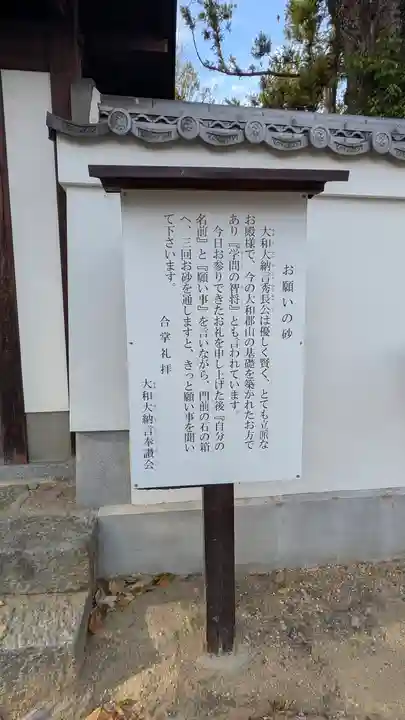 お願いの砂
大和大納言秀長公は優しく賢く、とても立派な
お殿様で、今の大和郡山の基礎を築かれたお方で
あり『学問の智将』とも言われています。
今日お参りできたお礼を申し上げた後『自分の
名前』と『願い事』を言いながら、門前の石の箱
へ、三回お砂を通しますと、きっと願い事を聞い
て下さいます。
合掌礼拝
大和大納言奉讃会